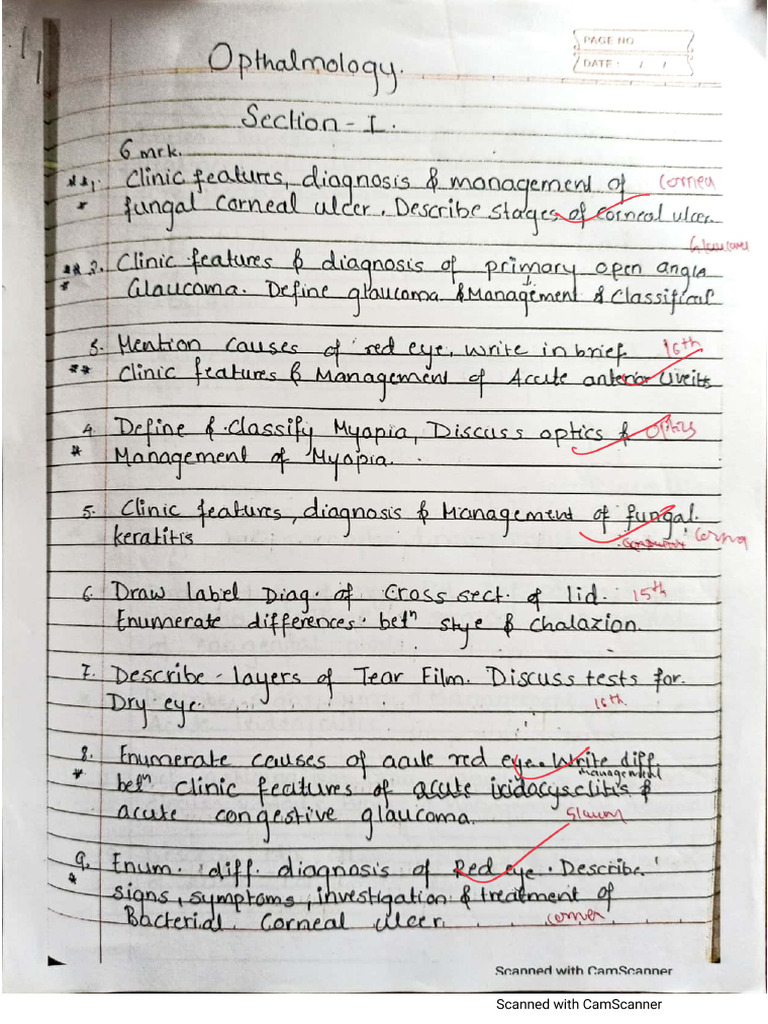 PAGE NO
DATE: / /
Opthalmology.
Section - I.
6 mrk.
**1. Clinic features, diagnosis & management of cornea
* fungal Corneal ulcer. Describe stages of corneal ulcer.
Glaucoma
**2. Clinic features & diagnosis of primary open angle
* Glaucoma. Define glaucoma & Management & Classificat
3. Mention causes of red eye, write in brief 16th
** Clinic features & Management of Acute anterior Uveits
4. Define & Classify Myopia, Discuss optics & Optics
* Management of Myopia.
5. Clinic features, diagnosis & Management of fungal.
keratitis cornea
6. Draw label Diag. of Cross sect. of lid. 15th
Enumerate differences. betn stye & chalazion.
7. Describe layers of Tear Film. Discuss tests for.
Dry eye. 16th
8. Enumerate causes of aaute red eye. Write diff.
* betn clinic features of acute iridacysclitis & management
acute congestive glaucoma. Glaucm
9. Enum. diff. diagnosis of Red eye. Describe
* signs, symptoms, investigation & treatment of
Bacterial Corneal ulcer. corner
Scanned with CamScanner
Scanned with CamScanner